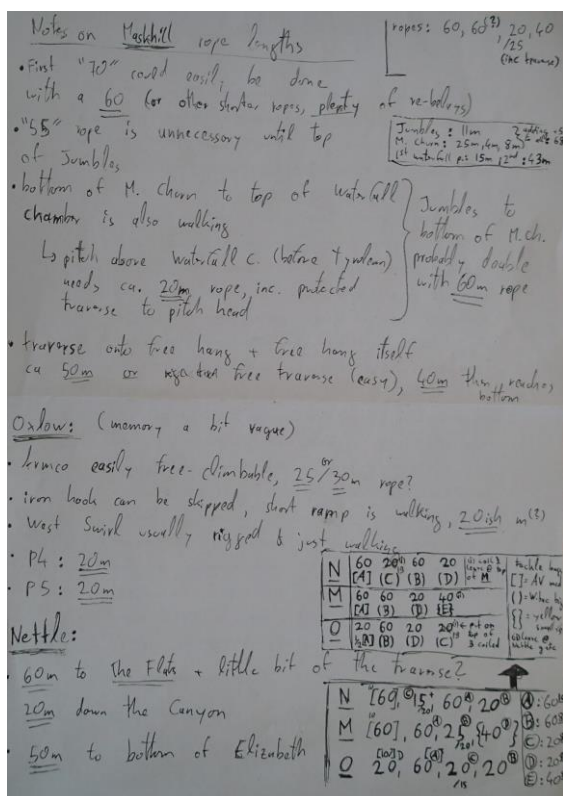 Notes on Maskhill rope lengths
ropes: 60, 60(?), 20, 40
/25
(inc traverse)
• First "70" could easily be done
with a 60 (or other shorter ropes, plenty of re-belays)
• "55" rope is unnecessary until top
of Jumbles
Jumbles: 11m
M. Churn: 25m, 4m, 8m
1st waterfall p.: 15m, 2nd: 43m
• bottom of M. Churn to top of waterfall
chamber is also walking
↳ pitch above waterfall c. (before tyrolean)
needs ca. 20m rope, inc. protected
traverse to pitch head
Jumbles to
bottom of M.Ch.
probably doable
with 60m rope
• traverse onto free hang + free hang itself
ca 50m or free traverse (easy), 40m then reaches
bottom
Oxlow: (memory a bit vague)
• easily free-climbable, 25 or 30m rope?
• iron hook can be skipped, short ramp is walking, 20ish m(?)
• West Swirl usually rigged & just walking
• P4: 20m
• P5: 20m
N 60 20 60 20
[A] (C) (B) (D)
M 60 60 20 40
[A] (B) (D) {E}
O 20 60 20 20
(B) (D) (C)
Nettle:
• 60m to The Flats + little bit of the traverse?
20m down the Canyon
• 50m to bottom of Elizabeth
N [60, 15, 60, 20
/20
M [60], 60, 25, {40}
/20
O 20, 60, 20, 20
/15
A: 60
B: 60
C: 20
D: 20
E: 40